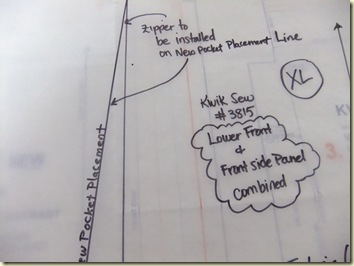 Zipper to
be installed
on New Pocket Placement Line
XL
Kwik Sew
# 3815
Lower Front
&
Front side Panel
Combined
ew Pocket Placement
3.